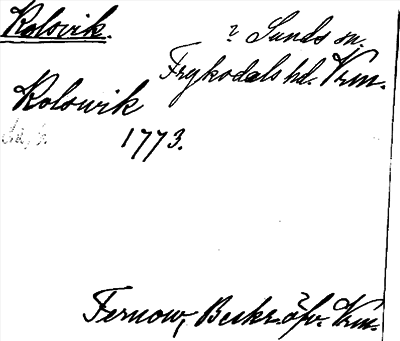 Kolovik.
i Sunds sn.
Fryksdals hd. Vrm.
Kolowik
1773.
Fernow, Beskr. öfv. Vrm.